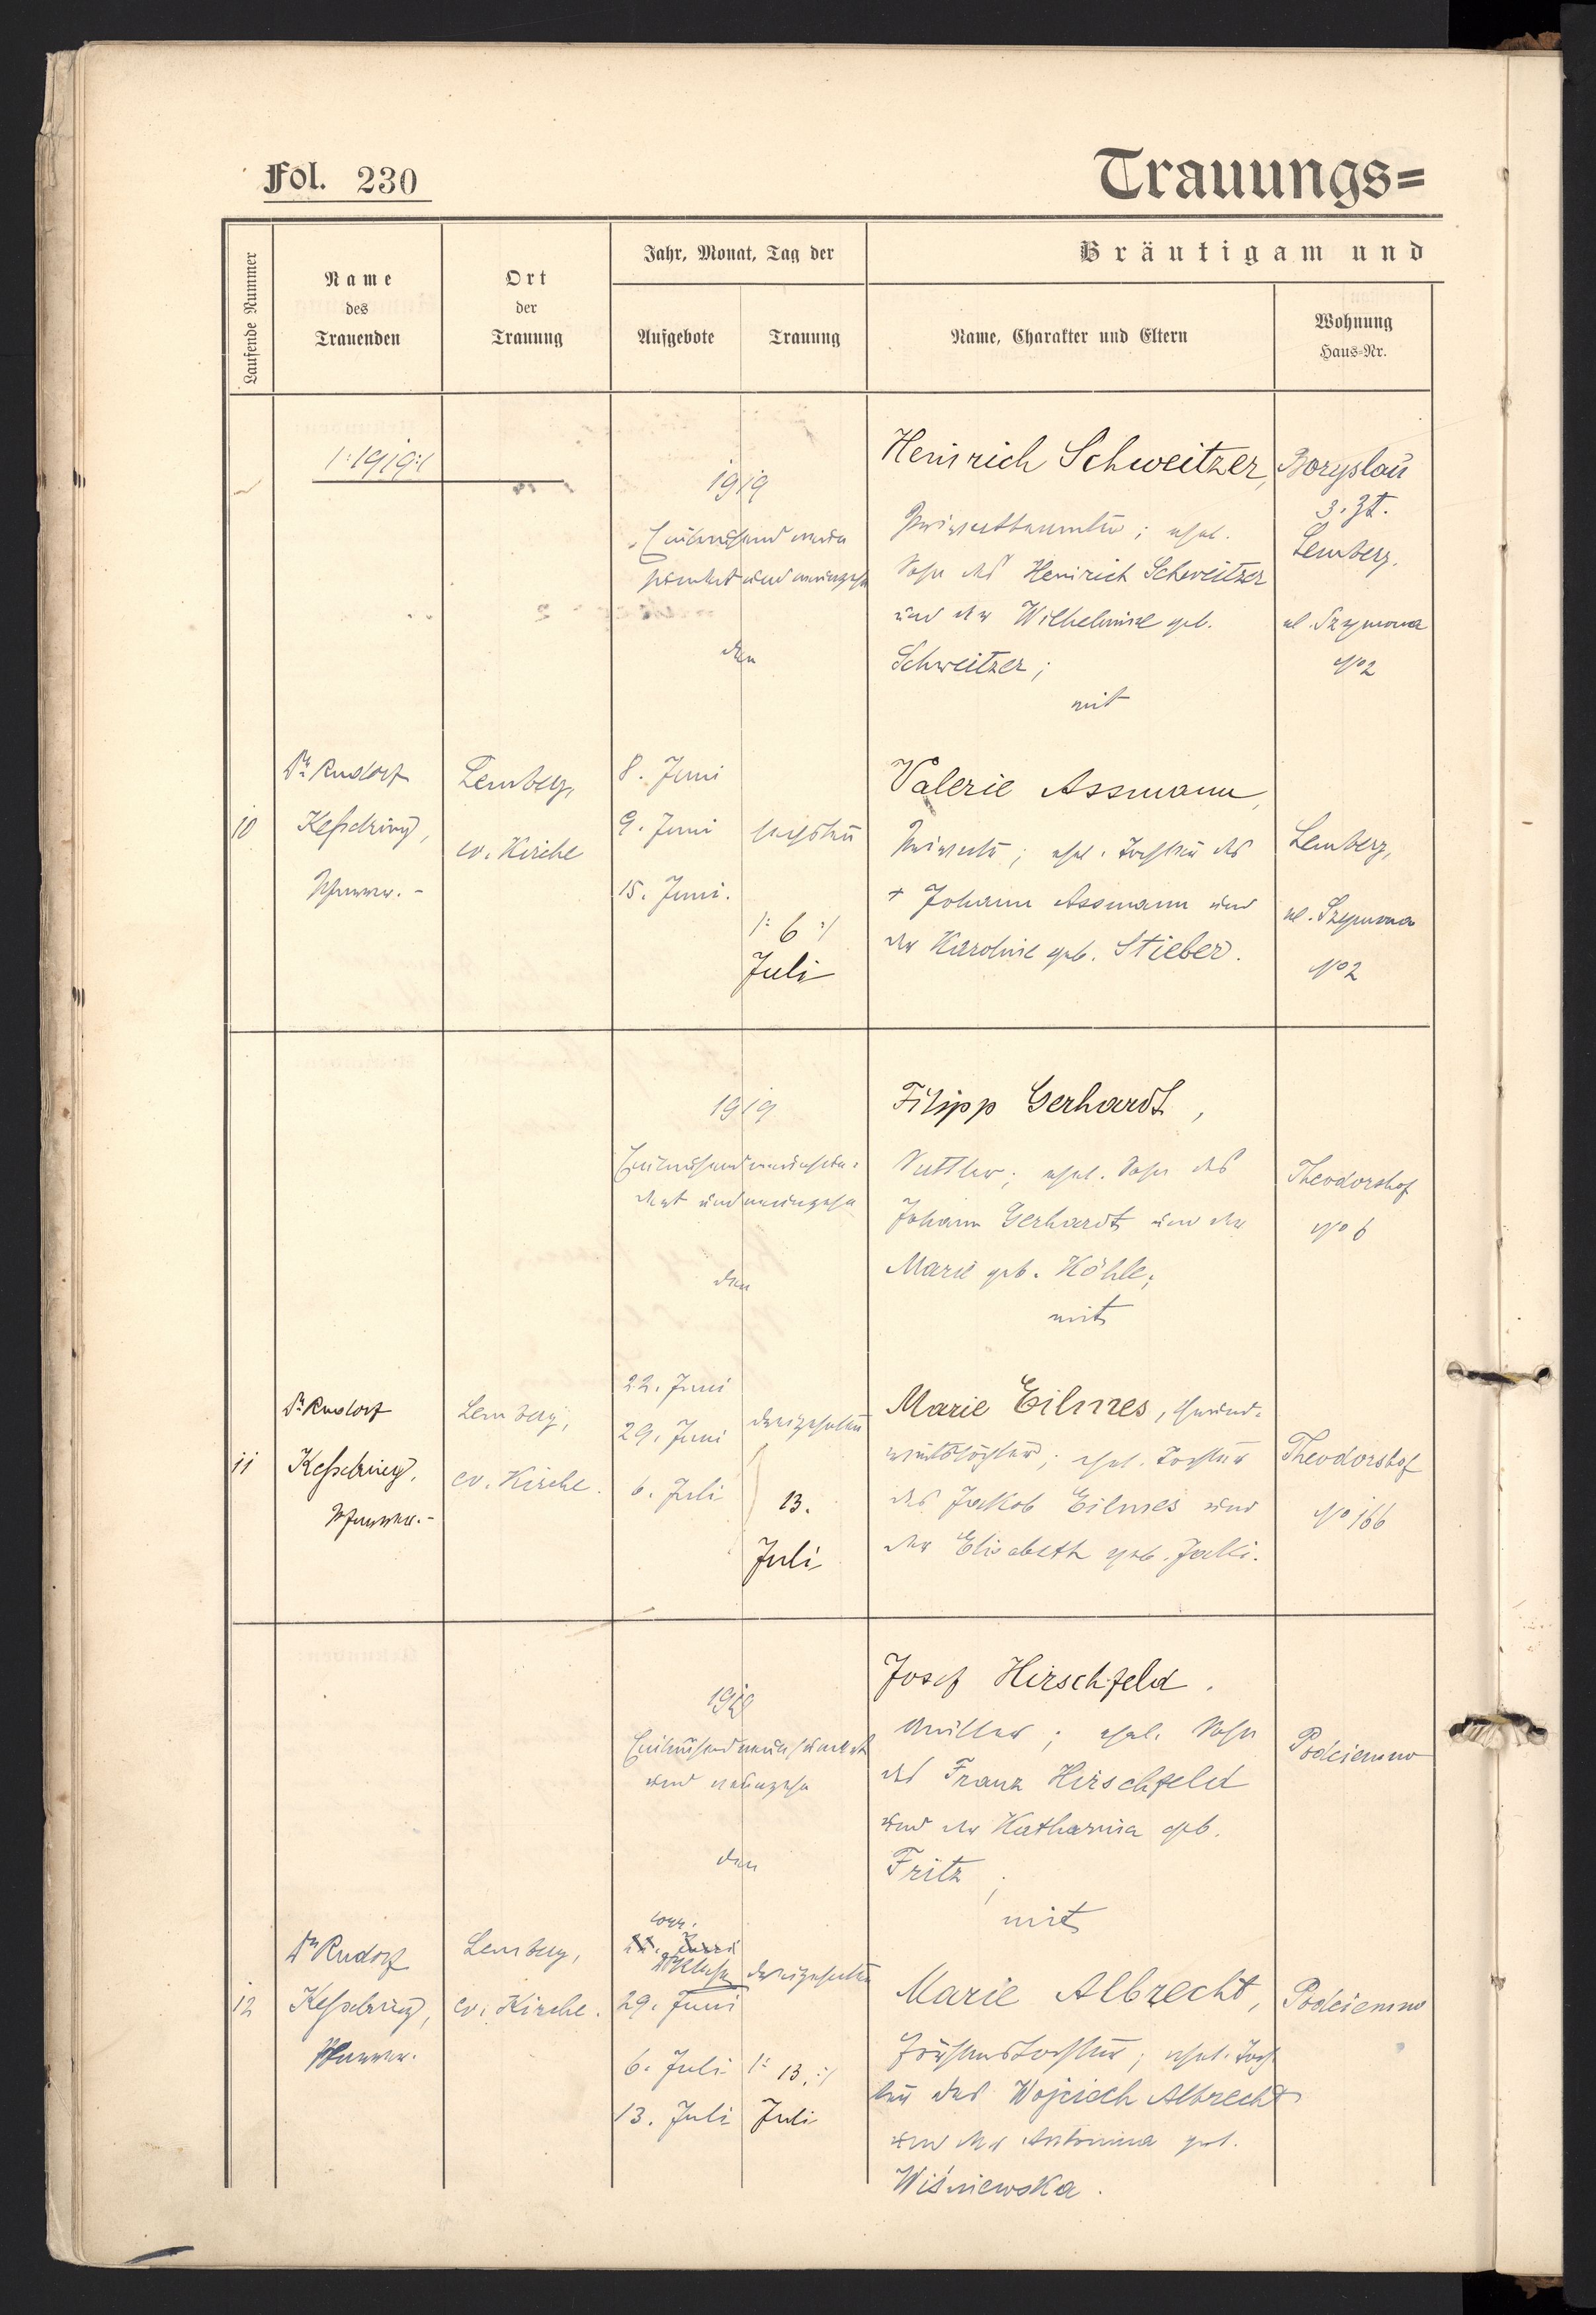 Fol. 230
Trauungs=
Laufende Nummer
Name
des
Trauenden
Ort
der
Trauung
Jahr, Monat, Tag der
Aufgebote
Trauung
Bräutigam und
Name, Charakter und Eltern
Wohnung
Haus=Nr.
/:1919:/
10
Dr. Rudolf
Keßelring,
Pfarrer.-
Lemberg,
ev. Kirche
1919
Eintausend neun
hundert und neunzehn
den
8. Juni
9. Juni
15. Juni.
sechsten
/: 6 :/
Juli
Heinrich Schweitzer,
Privatbeamter; ehel.
Sohn des Heinrich Schweitzer
und der Wilhelmine geb.
Schweitzer;
mit
Valerie Assmann,
Private; ehel. Tochter des
+ Johann Assmann und
der Karoline geb. Stieber.
Boryslau
z. Zt.
Lemberg,
ul. Szymona
No 2
Lemberg,
ul. Szymona
No 2
11
Dr. Rudolf
Keßelring,
Pfarrer.-
Lemberg,
ev. Kirche.
1919
Eintausend neunhun-
dert und neunzehn
den
22. Juni
29. Juni
6. Juli
dreizehnten
13.
Juli
Filipp Gerhardt,
Sattler; ehel. Sohn des
Johann Gerhardt und der
Marie geb. Köhle;
mit
Marie Eilmes, Grund-
wirtstochter; ehel. Tochter
des Jakob Eilmes und
der Elisabeth geb. Jaki.
Theodorshof
No 6
Theodorshof
No 166
12
Dr. Rudolf
Keßelring,
Pfarrer.
Lemberg,
ev. Kirche.
1919
Eintausend neunhundert
und neunzehn
den
corr.
29. Juni
6. Juli
13. Juli
dreizehnten
/: 13. :/
Juli
Josef Hirschfeld.
Müller; ehel. Sohn
des Franz Hirschfeld
und der Katharina geb.
Fritz;
mit
Marie Albrecht,
ehel. Toch
ter des Wojciech Albrecht
und der Antonina geb.
Wiśniewska.
Podciemno
Podciemno